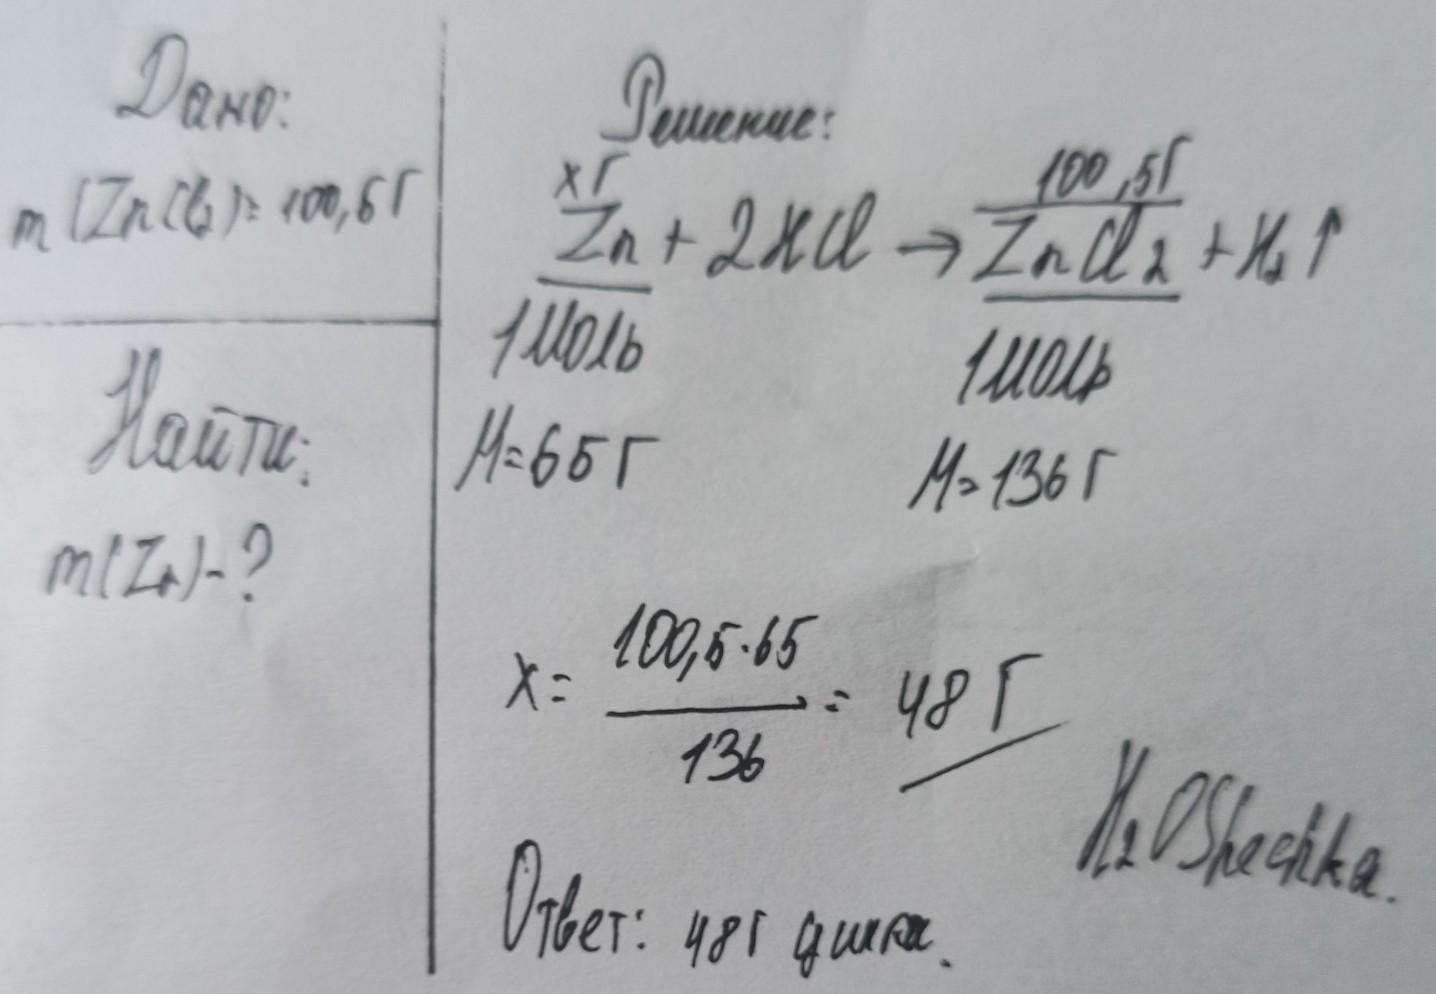 Дано:
m(ZnCl₂)=100,5г
Найти:
m(Zn)-?
Решение:
xг 100,5г
Zn + 2HCl → ZnCl₂ + H₂↑
1моль 1моль
M=65г M=136г
x= 100,5·65 / 136 = 48г
H₂OShechka.
Ответ: 48г цинка.